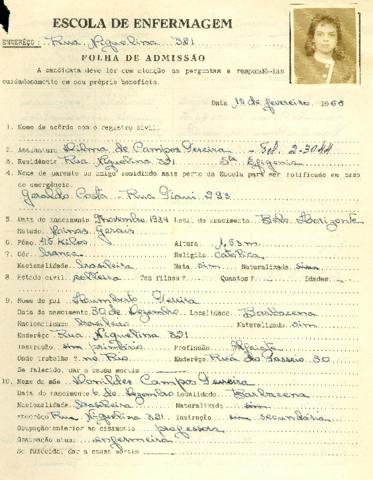 ESCOLA DE ENFERMAGEM
ENDERÊÇO: Rua Niquelina 321
FOLHA DE ADMISSÃO
A candidata deve lêr com atenção as perguntas e respondê-las
cuidadosamente em seu próprio benefício.
Data 10 de fevereiro 1960
1. Nome de acôrdo com o registro civil.
2. Assinatura Dilma de Campos Pereira - Tel. 2-3044
3. Residência Rua Niquelina 321. Sta Efigenia
4. Nome de parente ou amigo residindo mais perto da Escola para ser notificado em caso
de emergência.
Geraldo Costa - Rua Piaui 293.
5. Data do nascimento novembro 1934 Local do nascimento Belo Horizonte
Estado Minas Gerais
6. Pêso 46 kilos Altura 1,53 m
7. Côr branca Religião catolica
Nacionalidade brasileira Nata sim Naturalizada
8. Estado civil solteira Tem filhos? Quantos? Idades
9. Nome do pai Humberto Pereira
Data do nascimento 30 de Dezembro Localidade Barbacena
Nacionalidade brasileiro Naturalizado sim
Enderêço Rua Niquelina 321
Instrução primário Profissão Alfaiate
Onde trabalha? no Rio Enderêço Rua do Passeio 50
Se falecido, dar a causa mortis
10. Nome da mãe Campos Pereira
Data do nascimento 6 de Dezembro Localidade Barbacena
Nacionalidade brasileira Naturalizada sim
Enderêço Rua Niquelina 321 Instrução secundária
Ocupação anterior ao casamento professora
Ocupação atual enfermeira
Se falecida, dar a causa mortis